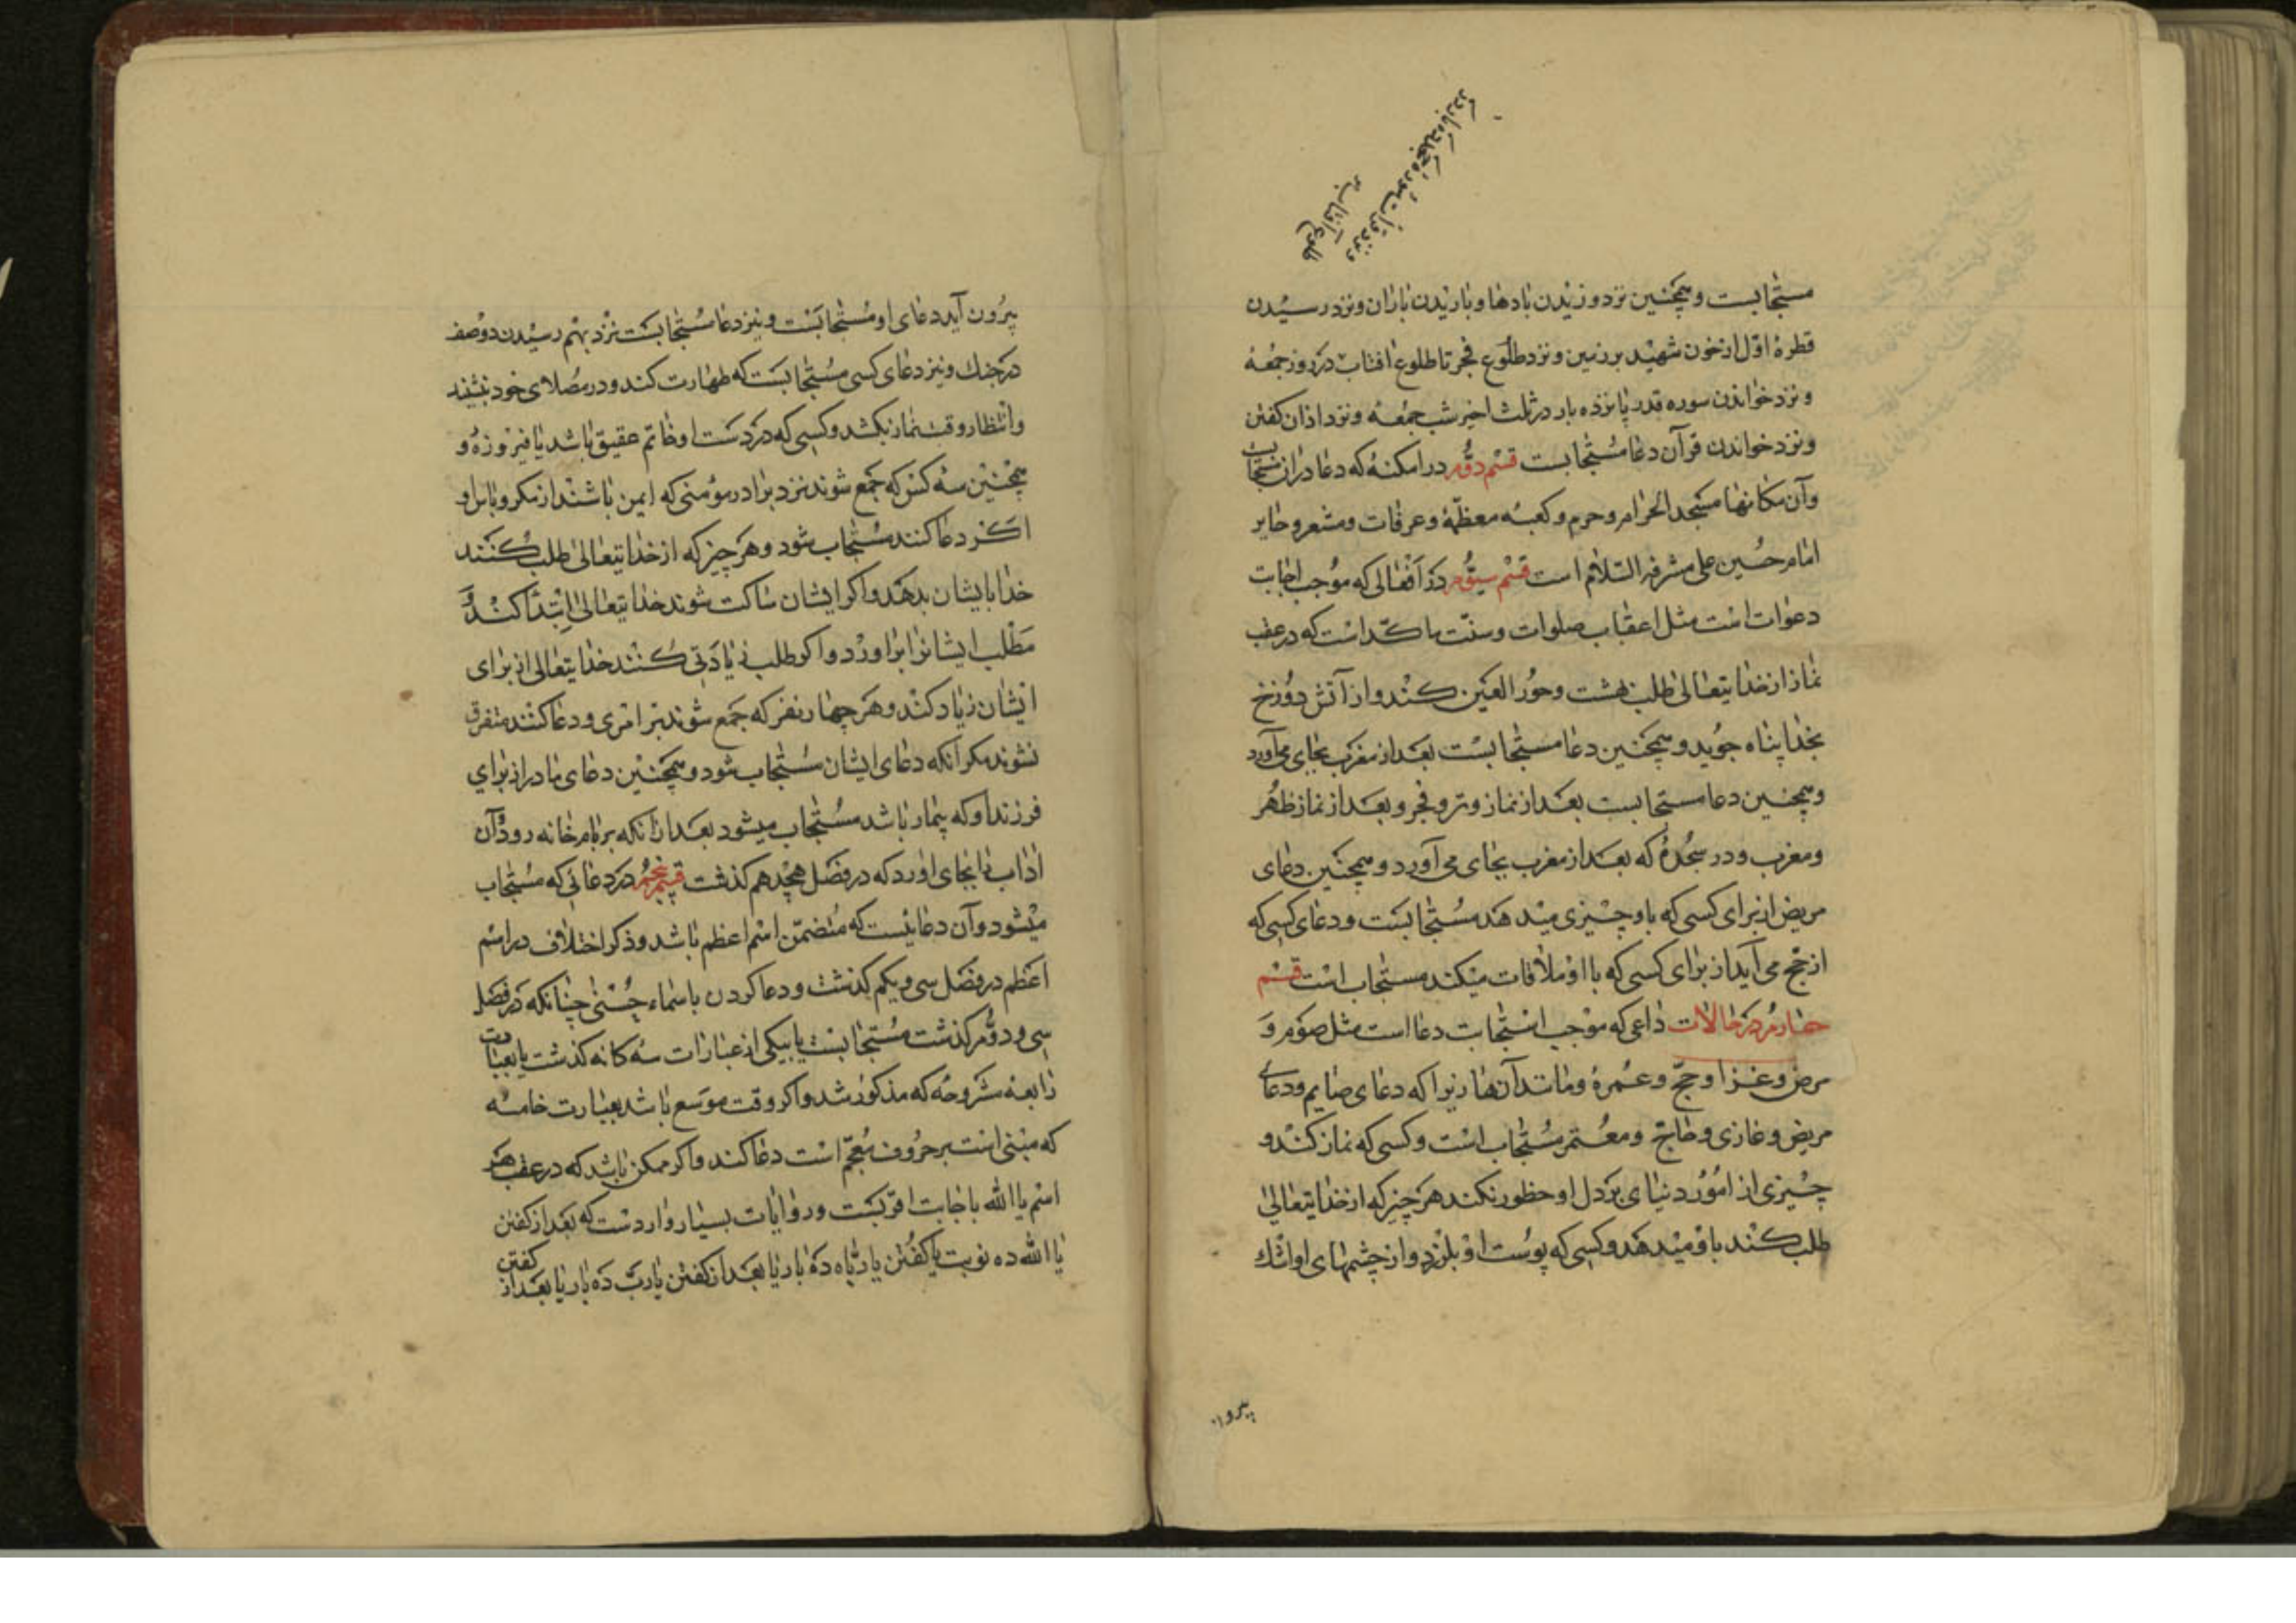 مستجابست و همچنین نزد وزیدن بادها و باریدن باران و نزد رسیدن
قطرهٔ اوّل از خون شهید بر زمین و نزد طلوع فجر تا طلوع افتاب در روز جمعه
و نزد خواندن سوره قدر پانزده بار در ثلث اخیر شب جمعه و نزد اذان کفتن
و نزد خواندن قرآن دعا مستجابست قسم دوّم در امکنهٔ که دعا در ان مستجابست
وآن مکانها مسجد الحرام و حرم و کعبهٔ معظمه و عرفات و مشعر و حایر
امام حسین علی مشرفه السّلام است قسم سیّوم در افعالی که موجب اجابت
دعوات است مثل اعقاب صلوات و سنّت ماکّد است که در عقب
نماز از خدایتعالی طلب بهشت و حور العین کند و از آتش دوزخ
بخدا پناه جوید و همچنین دعا مستجابست بعد از مغرب بجای می آورد
و همچنین دعا مستجابست بعد از نماز وتر و فجر و بعد از نماز ظهر
و مغرب و در سجدهٔ که بعد از مغرب بجای می آورد و همچنین دعای
مریض از برای کسی که باو چیزی میدهند مستجابست و دعای کسی که
از حج می آید از برای کسی که با او ملاقات میکند مستجاب است قسم
چهارم در حالات داعی که موجب استجابت دعا است مثل صوم و
مرض و غزا و حجّ و عمره و مانند آن ها زیرا که دعای صایم و دعای
مریض و غازی و حاجّ و معتمر مستجاب است و کسی که نماز کند و
چیزی از امور دنیای بر دل او حظور نکند هر چیز که از خدایتعالی
طلب کند باو میدهد و کسی که پوست او بلرزد و از چشمهای او اشک
بیرون
بیرون آید دعای او مستجابست و نیز دعا مستجابست نزد بهم رسیدن دو صف
در جنک و نیز دعای کسی مستجابست که طهارت کند و در مصلای خود نشیند
و انتظار وقت نماز بکشد و کسی که در دست او خاتم عقیق باشد یا فیروزه و
همچنین سه کس که جمع شوند نزد برادر مؤمنی که ایمن باشند از مکر و
اکر دعا کنند مستجاب شود و هر چیز که از خدایتعالی طلب کنند
خدا بایشان بدهد و اکر ایشان ساکت شوند خدایتعالی ابتدا کند و
مطلب ایشانرا براورد و اکر طلب زیادتی کنند خدایتعالی از برای
ایشان زیاد کند و هر چهار نفر که جمع شوند بر امری و دعا کنند متفرق
نشوند مکر آنکه دعای ایشان مستجاب شود و همچنین دعای مادر از برای
فرزند او که بیمار باشد مستجاب میشود بعد از انکه بر بام خانه رود و آن
اداب را بجای اورد که در فصل هجدهم کذشت قسم پنجم در دعائی که مستجاب
میشود و آن دعائیست که متضمّن اسم اعظم باشد و ذکر اختلاف در اسم
اعظم در فصل سی و یکم کذشت و دعا کردن باسماء حسنی چنانکه در فصل
سی و دوّم کذشت مستجابست یا بیکی از عبارات سه کانه کذشت یا بعبارت
رابعه مشروحه که مذکور شد و اکر وقت موسع باشد بعبارت خامسه
که مبنی است بر حروف معجم است دعا کند و اکر ممکن باشد که در عقب هر
اسم یا الله باجابت اقربست و روایات بسیار واردست که بعد از کفتن
یا الله ده نوبت یا کفتن یا ربّاه ده بار یا بعد از کفتن یا ربّ ده بار یا بعد از کفتن